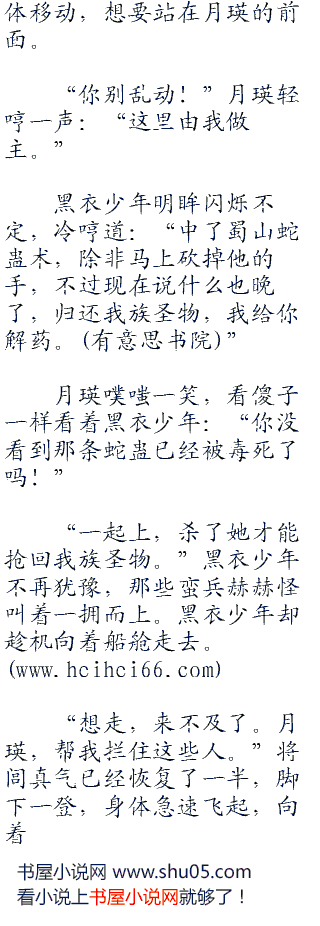 体移动，想要站在月瑛的前
面。
“你别乱动！”月瑛轻
哼一声：“这里由我做
主。”
黑衣少年明眸闪烁不
定，冷哼道：“中了蜀山蛇
蛊术，除非马上砍掉他的
手，不过现在说什么也晚
了，归还我族圣物，我给你
解药。(有意思书院)”
月瑛噗嗤一笑，看傻子
一样看着黑衣少年：“你没
看到那条蛇蛊已经被毒死了
吗！”
“一起上，杀了她才能
抢回我族圣物。”黑衣少年
不再犹豫，那些蛮兵赫赫怪
叫着一拥而上。黑衣少年却
趁机向着船舱走去。
(www.hcihci66.com)
“想走，来不及了。月
瑛，帮我拦住这些人。”将
闾真气已经恢复了一半，脚
下一登，身体急速飞起，向
着
书屋小说网 www.shu05.com
看小说上书屋小说网就够了！